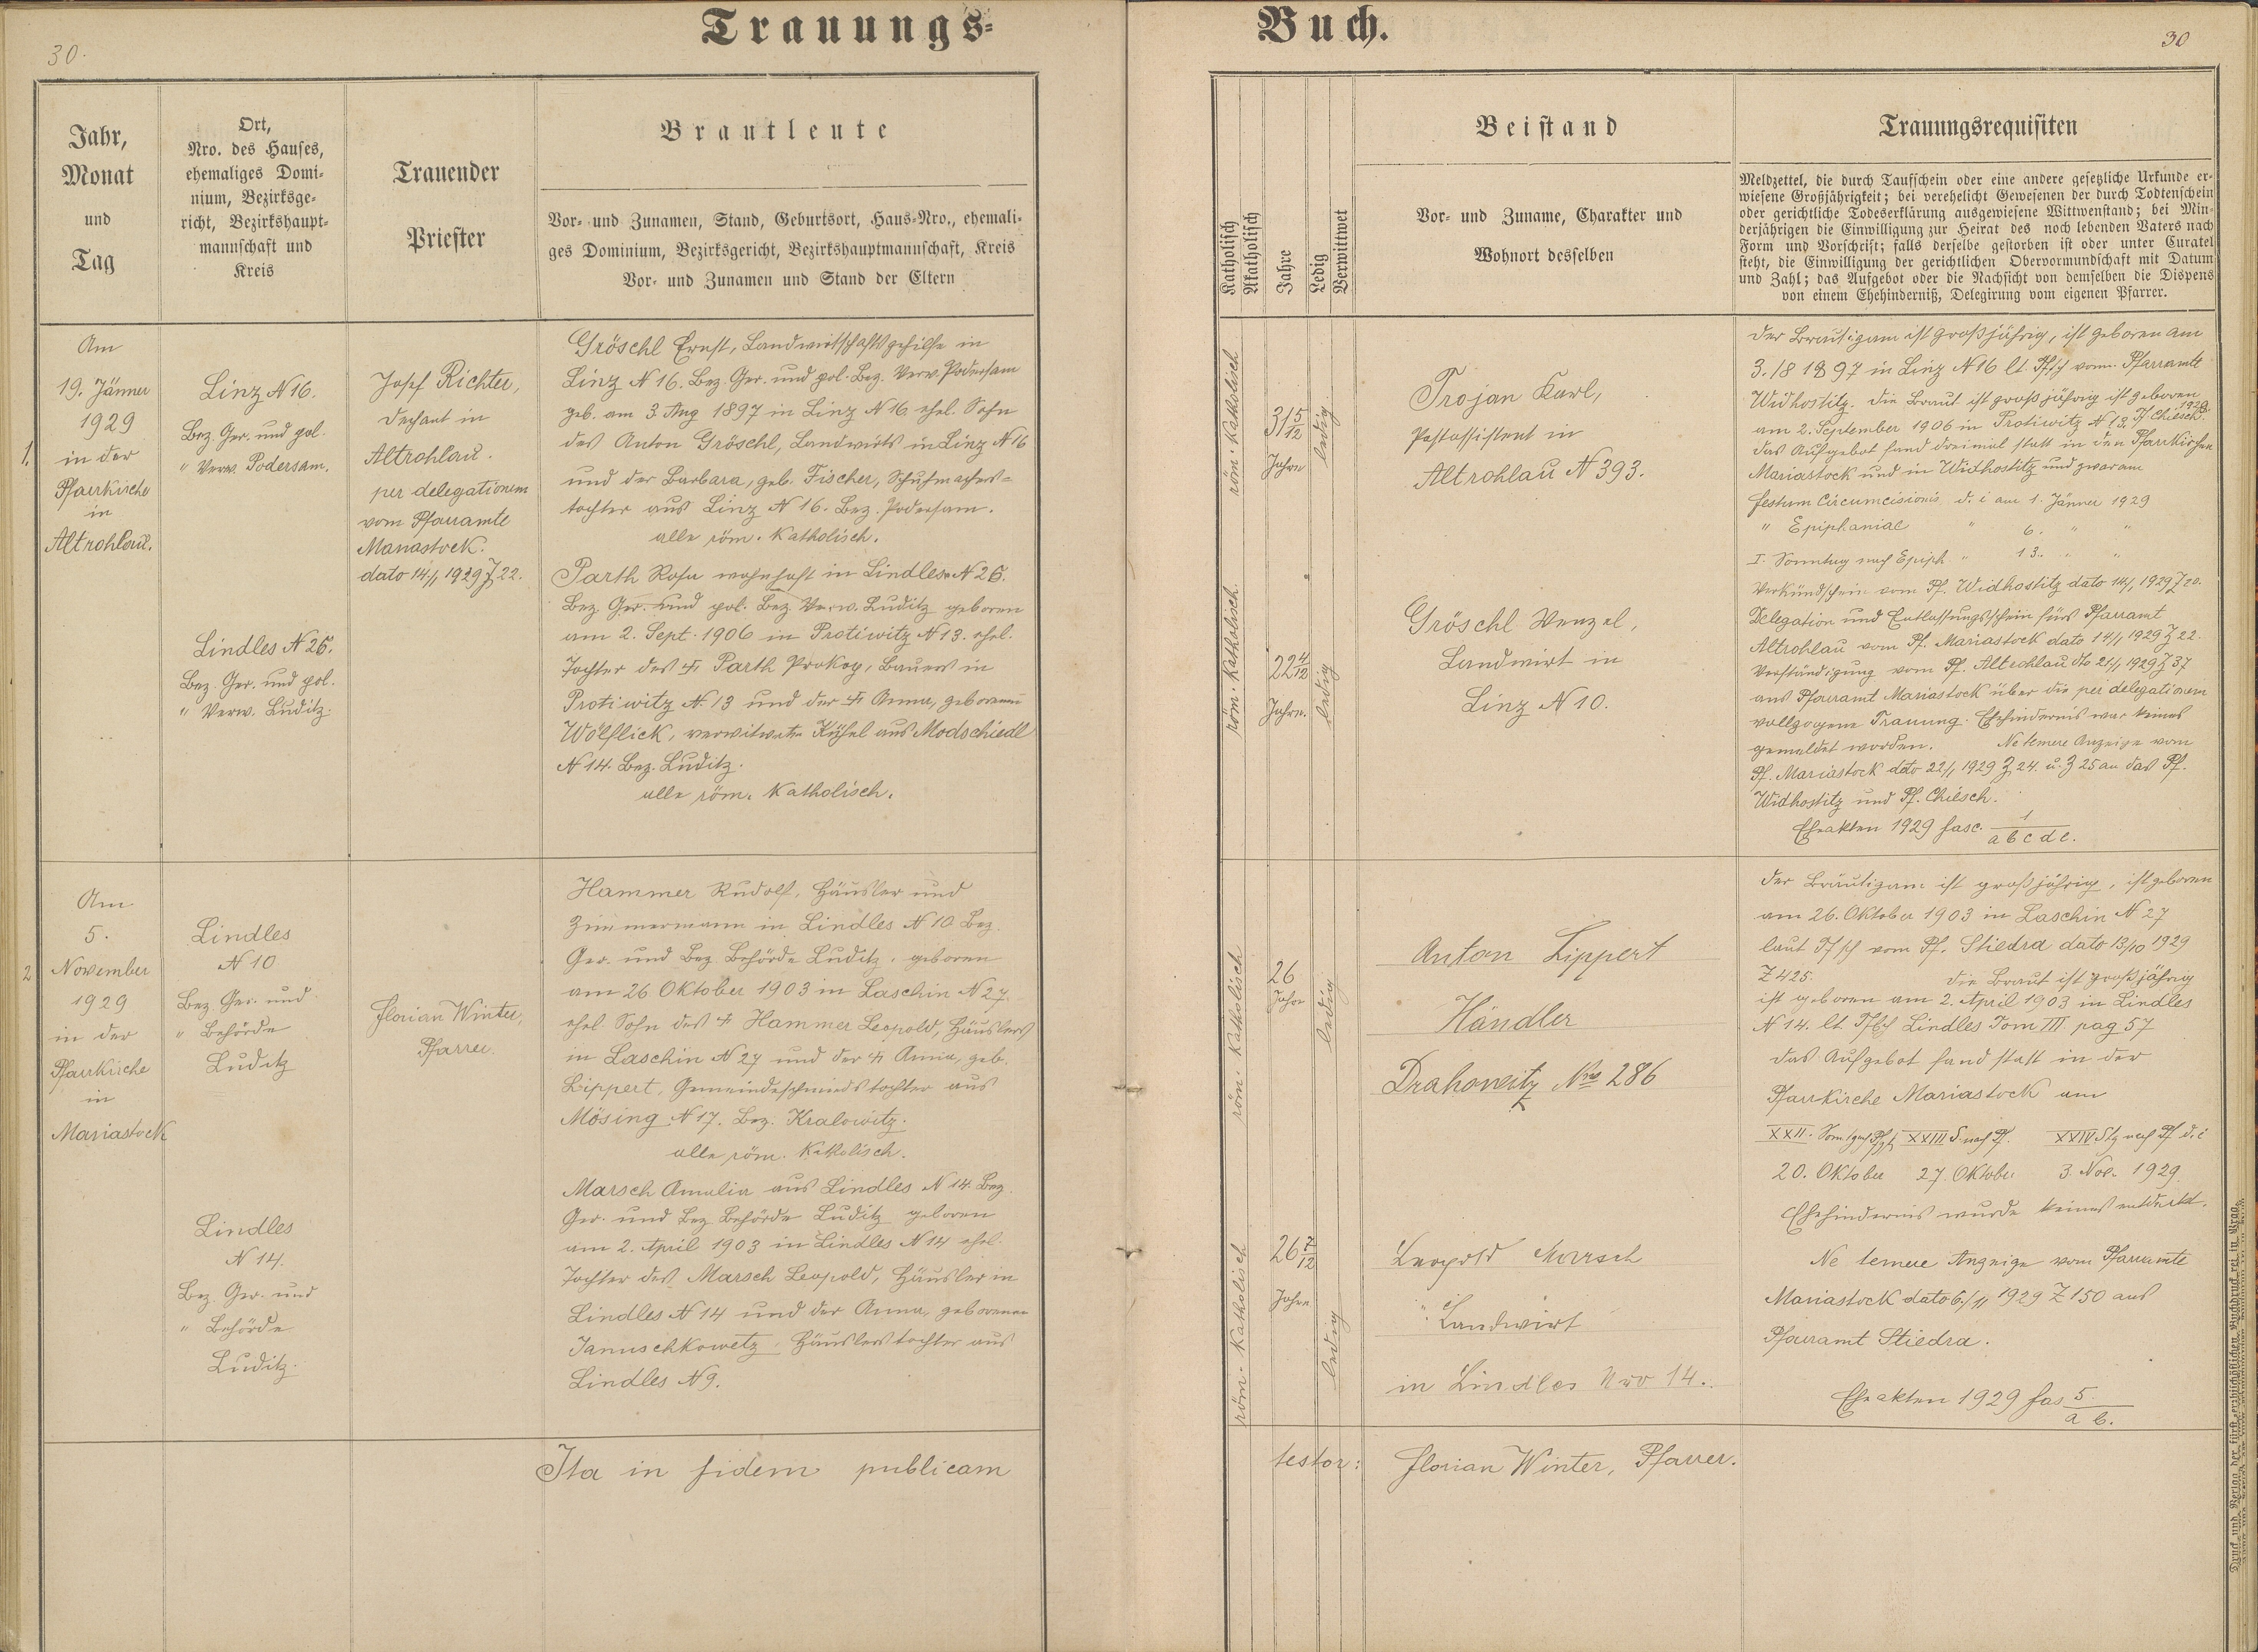 Trauungs-
Buch.
30.
30
Jahr,
Monat
und
Tag
Ort,
Nro. des Hauses,
ehemaliges Domi-
nium, Bezirksge-
richt, Bezirkshaupt-
mannschaft und
Kreis
Trauender
Priester
Brautleute
Vor- und Zunamen, Stand, Geburtsort, Haus-Nro., ehemali-
ges Dominium, Bezirksgericht, Bezirkshauptmannschaft, Kreis
Vor- und Zunamen und Stand der Eltern
Katholisch
Akatholisch
Jahre
Ledig
Verwittwet
Beistand
Vor- und Zuname, Charakter und
Wohnort desselben
Trauungsrequisiten
Meldzettel, die durch Taufschein oder eine andere gesetzliche Urkunde er-
wiesene Großjährigkeit; bei verehelicht Gewesenen der durch Todtenschein
oder gerichtliche Todeserklärung ausgewiesene Wittwenstand; bei Min-
derjährigen die Einwilligung zur Heirat des noch lebenden Vaters nach
Form und Vorschrift; falls derselbe gestorben ist oder unter Curatel
steht, die Einwilligung der gerichtlichen Obervormundschaft mit Datum
und Zahl; das Aufgebot oder die Nachsicht von demselben die Dispens
von einem Ehehinderniß, Delegirung vom eigenen Pfarrer.
1.
Am
19. Jänner
1929
in der
Pfarrkirche
in
Altrohlau.
Linz N 16.
Bez. Ger. und pol.
" Verw. Podersam.
Lindles N 26.
Bez. Ger. und pol.
" Verw. Luditz.
Josef Richter,
Dechant in
Altrohlau.
per delegationem
vom Pfarramte
Mariastock.
dato 14./1 1929 Z 22.
Gröschl Ernst, Landwirtschaftsgehilfe in
Linz N 16. Bez. Ger. und pol. Bez. Verw. Podersam
geb. am 3. Aug 1897 in Linz N 16. ehel. Sohn
des Anton Gröschl, Landwirts in Linz N 16
und der Barbara, geb. Fischer, Schuhmachers-
tochter aus Linz N 16. Bez. Podersam.
alle röm. Katholisch.
Parth Rosa wohnhaft in Lindles N 26.
Bez. Ger. und pol. Bez Verw. Luditz geboren
am 2. Sept. 1906 in Protiwitz N 13. ehel.
Tochter des † Parth Prokop, Bauers in
Protiwitz N. 13 und der † Anna, geborenen
Wölflick, verwitwete aus Modschiedl
N 14. Bez. Luditz.
alle röm. Katholisch.
röm. Katholisch
31 5/12
Jahre
ledig
röm. Katholisch
22 4/12
Jahre.
ledig
Trojan Karl,
Postassistent in
Altrohlau N 393.
Gröschl Wenzel,
Landwirt in
Linz N 10.
Der Bräutigam ist großjährig, ist geboren am
3./8 1897 in Linz N 16 lt. Tfsch vom Pfarramte
Widhostitz. Die Braut ist großjährig ist geboren
am 2. September 1906 in Protiwitz N 13. Pf Chiesch 1929.
Das Aufgebot fand dreimal statt in den Pfarrkirchen
Mariastock und in Widhostitz und zwar am
festum Circumcisionis d. i am 1. Jänner 1929
" Epiphaniae " 6. " "
I. Sonntag nach Epiph. " 13. " "
Verkündschein vom Pf. Widhostitz dato 14/1 1929 Z 20.
Delegation und Entlassungsschein fürs Pfarramt
Altrohlau vom Pf. Mariastock dato 14/1 1929 Z 22.
Verständigung vom Pf. Altrohlau dto 21/1 1929 Z 37
ans Pfarramt Mariastock über die per delegationem
vollzogene Trauung. Ehehindernis war keines
gemeldet worden. Ne temere Anzeige vom
Pf. Mariastock dato 22/1 1929 Z 24. u. Z 25 an das Pf.
Widhostitz und Pf. Chiesch.
Eheakten 1929 fasc. 1/a b c d e.
2
Am
5.
November
1929
in der
Pfarrkirche
in
Mariastock
Lindles
N 10
Bez. Ger. und
" Behörde
Luditz
Lindles
N 14.
Bez. Ger. und
" Behörde
Luditz.
Florian Winter,
Pfarrer.
Hammer Rudolf, Häusler und
Zimmermann in Lindles N 10 Bez.
Ger. und Bez. Behörde Luditz, geboren
am 26 Oktober 1903 in Laschin N 27.
ehel. Sohn des † Hammer Leopold, Häuslers
in Laschin N 27 und der † Anna, geb.
Lippert, Gemeindeschmiedstochter aus
Mösing N 17. Bez. Kralowitz.
alle röm. Katholisch.
Marsch Amalia aus Lindles N 14. Bez.
Ger. und Bez Behörde Luditz geboren
am 2. April 1903 in Lindles N 14 ehel.
Tochter des Marsch Leopold, Häusler in
Lindles N 14 und der Anna, geborenen
Januschkowetz, Häuslerstochter aus
Lindles N 9.
röm. Katholisch
26
Jahre
ledig
röm. Katholisch
26 7/12
Jahre
ledig
Anton Lippert
Händler
Drahowitz Nro 286
Leopold Marsch
Landwirt
in Lindles Nro 14.
Der Bräutigam ist großjährig, ist geboren
am 26. Oktober 1903 in Laschin N 27
laut Tfsch vom Pf. Stiedra dato 13/10 1929
Z 425. Die Braut ist großjährig
ist geboren am 2. April 1903 in Lindles
N 14. lt. Tfb Lindles Tom III pag 57
Das Aufgebot fand statt in der
Pfarrkirche Mariastock am
XXII. Sonntg nach Pf. XXIII S. nach Pf. XXIV Stg nach Pf d. i
20. Oktober 27. Oktober 3 Nov. 1929.
Ehehindernis wurde keines entdeckt.
Ne temere Anzeige vom Pfarramte
Mariastock dato 6./11 1929 Z 150 ans
Pfarramt Stiedra.
Eheakten 1929 fas 5./a b.
Ita in fidem publicam
testor: Florian Winter, Pfarrer.